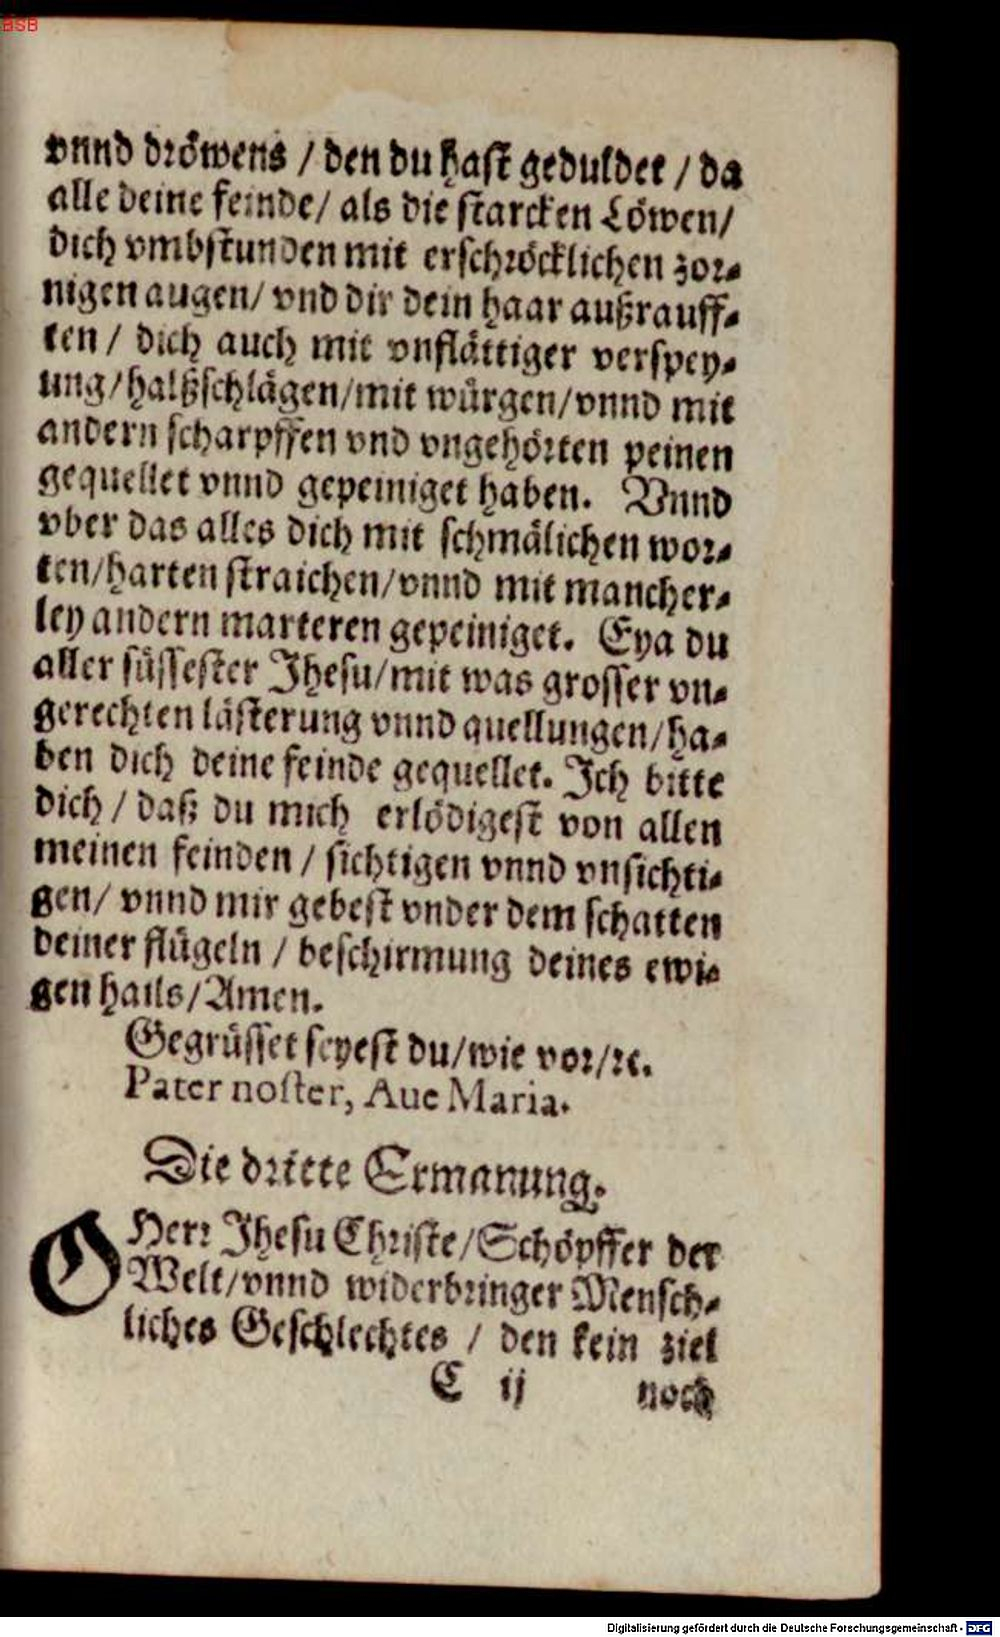 BSB
vnnd dröwens / den du hast geduldet / da
alle deine feinde/ als die starcken Löwen/
dich vmbstunden mit erschröcklichen zor-
nigen augen/ vnd dir dein haar außrauff-
ten / dich auch mit vnflättiger verspey-
ung/halßschlägen/mit würgen/vnnd mit
andern scharpffen vnd vngehörten peinen
gequellet vnnd gepeiniget haben. Vnnd
vber das alles dich mit schmälichen wor-
ten/harten straichen/vnnd mit mancher-
ley andern marteren gepeiniget. Eya du
aller süssester Jhesu/mit was grosser vn-
gerechten lästerung vnnd quellungen/ha-
ben dich deine feinde gequellet. Jch bitte
dich / daß du mich erlödigest von allen
meinen feinden / sichtigen vnnd vnsichti-
gen/ vnnd mir gebest vnder dem schatten
deiner flügeln / beschirmung deines ewi-
gen hails/Amen.
Gegrüsset seyest du/wie vor/ꝛc.
Pater noster, Aue Maria.
Die dritte Ermanung.
O Herr Jhesu Christe/Schöpffer der
Welt/vnnd widerbringer Mensch-
liches Geschlechtes / den kein ziel
C ij noch
Digitalisierung gefördert durch die Deutsche Forschungsgemeinschaft - DFG